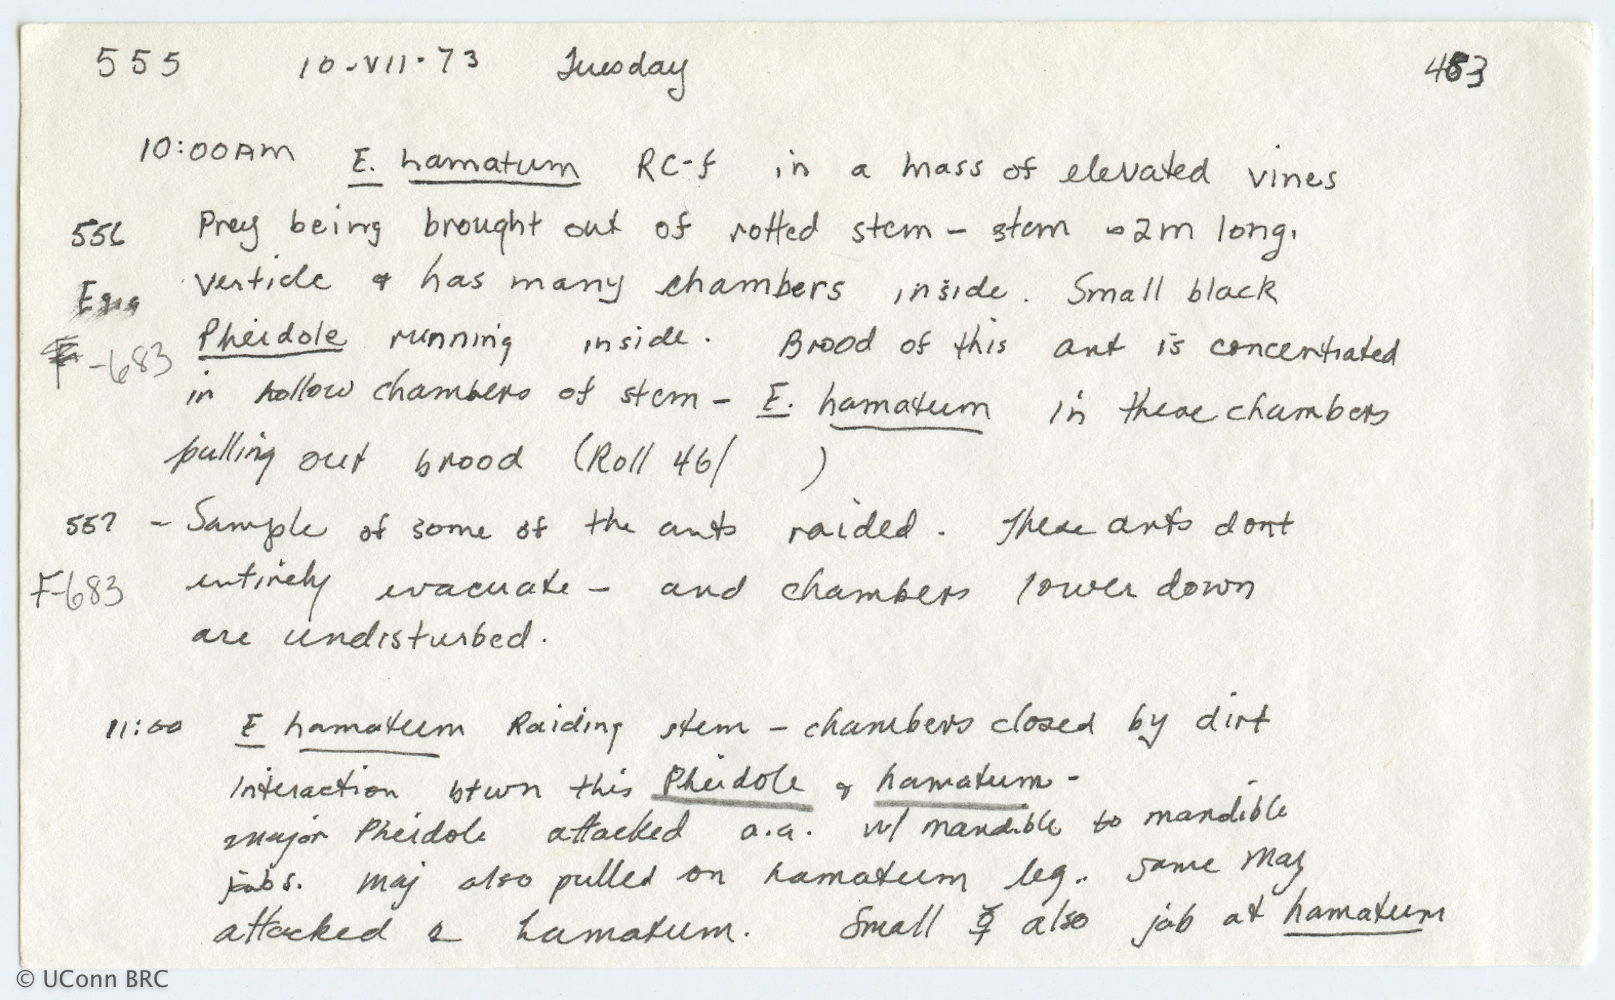 555 10.VII.73 Tuesday 483
10:00AM E. hamatum RC-f in a mass of elevated vines
556 Prey being brought out of rotted stem - stem ~2m long.
verticle & has many chambers inside. Small black
Pheidole running inside. Brood of this ant is concentrated
-683
in hollow chambers of stem - E. hamatum in these chambers
pulling out brood (Roll 46/ )
557 - Sample of some of the ants raided. These ants dont
F-683 entirely evacuate - and chambers lower down
are undisturbed.
11:00 E hamatum Raiding stem - chambers closed by dirt
Interaction btwn this Pheidole & hamatum -
major Pheidole attacked a.a. w/ mandible to mandible
jabs. Maj also pulled on hamatum leg. Same Maj
attacked 2 hamatum. Small ☿ also jab at hamatum
© UConn BRC